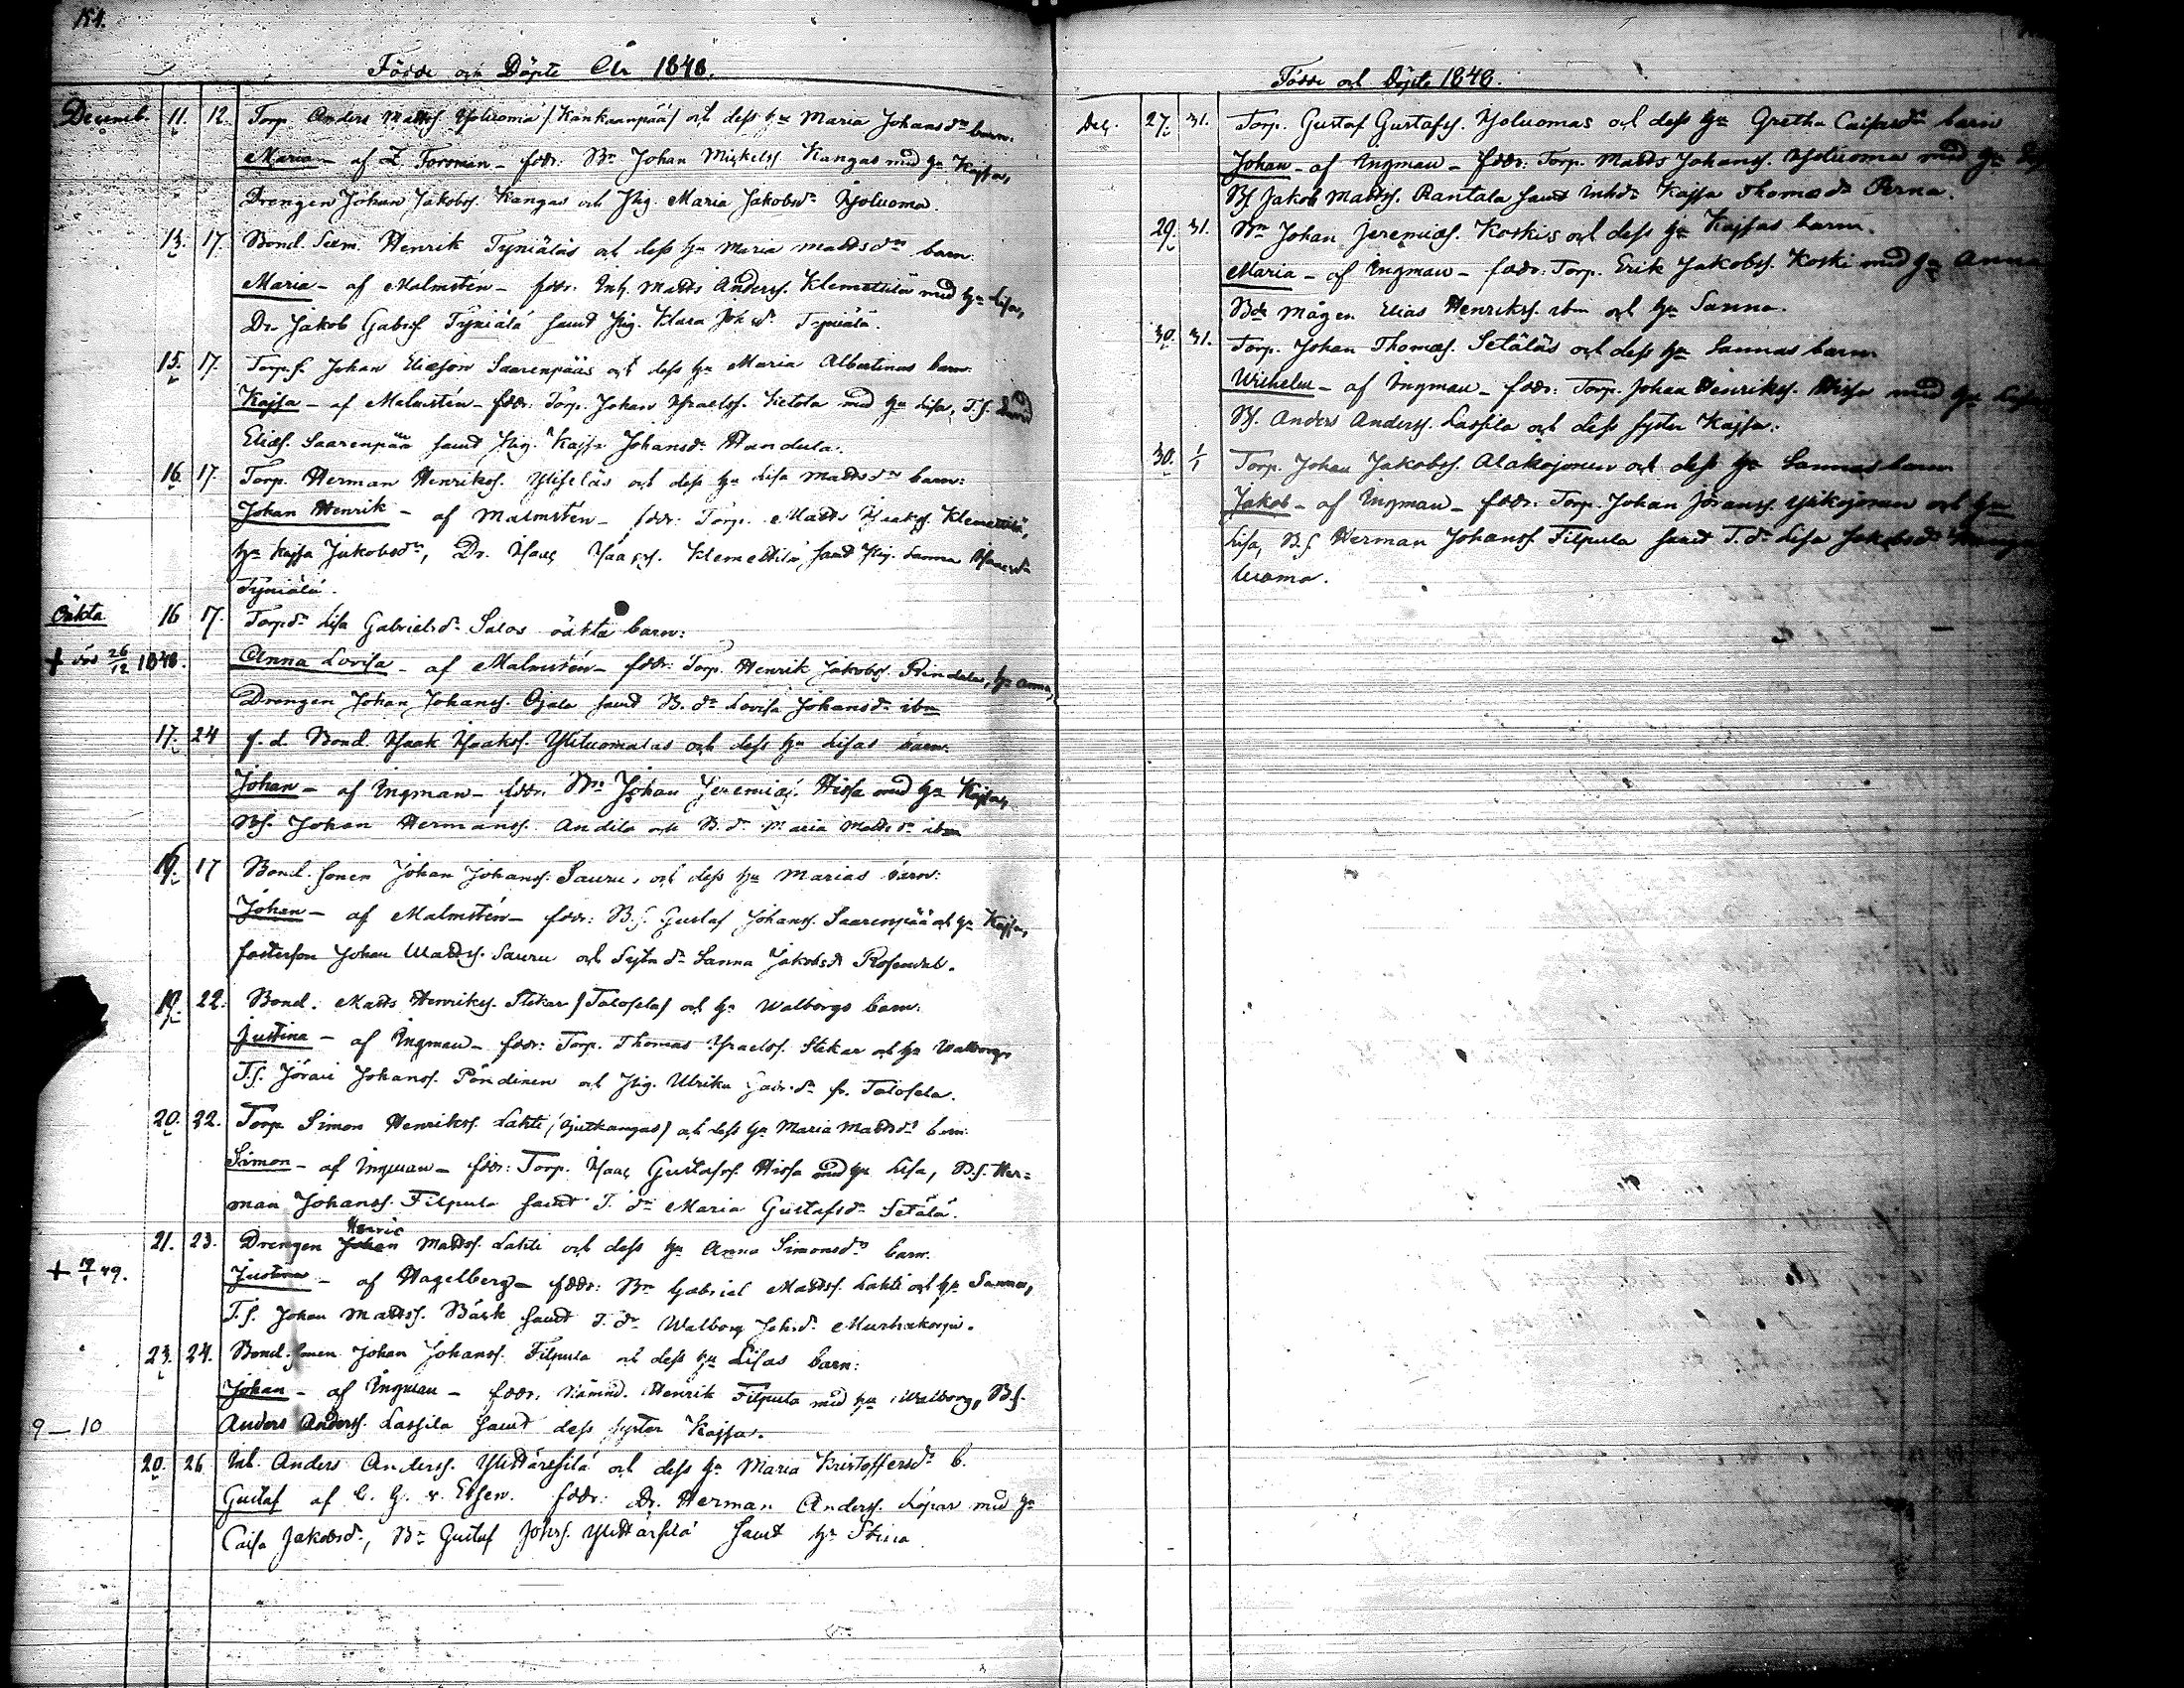 151.
Födde och Döpte År 1848.
Decemb. 11. 12. Torp. Anders Matts. Yoluoma /Kankaanpää/ och dess h:u Maria Johansd:rs barn.
Maria - af Z Forsman - fddr: B:n Johan Mickelss. Kangas med h:u Kajsa,
Drengen Johan Jakobss. Kangas och Pig. Maria Jakobsd:r Yoluoma.
13. 17. Bond. Henrik Tyniäläs och dess h:u Maria Mattsd:rs barn.
Maria - af Malmstén - fddr: Inh. Matts Anderss. Klemettilä med h:u Lisa,
Dr. Jakob Gabrss Tyniälä samt Pig. Klara Joh.d:r Tyniälä.
15. 17. Torp.s. Johan Eliæson Saarenpääs och dess h:u Maria Albertinas barn.
Kajsa - af Malmstén - fddr: Torp. Johan Israelss. Lietola med h:u Lisa, T.S.
Eliæs. Saarenpää samt Pig. Kajsa Johansd:r Handula.
16. 17. Torp. Herman Henrikss. och dess h:u Lisa Mattsd:rs barn:
Johan Henrik - af Malmstén - fddr: Torp. Matts Isaakss. Klemettilä,
h:u Kajsa Jakobsd:r, Dr. Isaac Isaacss. Klemettilä, samt Pig. Sanna Isaacsd:r
Tyniälä.
Oäkta 16 17. Torp.d:r Lisa Gabrielsd:r Salos oäkta barn:
+ död 26/12 1848. Anna Lovisa - af Malmstén - fddr: Torp. Henrik Jakobss. Rindala, h:u Anna,
Drengen Johan Johanss. Ojala samt B.d:r Lovisa Johansd:r ibm
17. 24 f.d. Bond. Isaak Isaakss. Yliluomalas och dess h:u Lisas barn.
Johan - af Ingman - fddr. B:n Johan Jeremiæs. Hissa med h:u Kajsa,
BS. Johan Hermanss. Andila och B.d:r Maria Mattsd:r ibm
19. 17 Bond. sonen Johan Johanss. Sauru, och dess h:u Marias barn:
Johan - af Malmstén - fddr: B.S. Gustaf Johanss. Saarenpää och h:u Kajsa,
fosterson Johan Mattss. Sauru och Sytn.d:r Sanna Jakobsd:r Rosendal.
19. 22. Bond. Matts Henrikss. Stekar /Talosela/ och h:u Walborgs barn:
Justina - af Ingman - fddr: Torp. Thomas Israelss. Stekar och h:u Walborg,
T.S. Jöran Johanss. Pöndinen och Pig. Ulrika fr. Talosela.
20. 22. Torp. Simon Henrikss. Lahti och dess h:u Maria Mattsd:rs barn.
Simon - af Ingman - fddr: Torp. Isaac Gustafss. Hissa med h:u Lisa, B.S. Her=
man Johanss. Filpula samt T.d:r Maria Gustafsd:r Setälä.
21. 23. Drengen Johan Henric Mattss. Lahti och dess h:u Anna Simonsd:rs barn.
+ 19/1 49. Justina - af Hagelberg - fddr: B:n Gabriel Mattss. Lahti och h:u Sanna,
T.S. Johan Mattss. Bäck samt T.d:r Walborg Joh.d:r
23. 24. Bond.sonen Johan Johanss. Filpula och dess h:u Lisas barn:
Johan - af Ingman - fddr. Nämnd. Henrik Filpula med h:u Walborg, BS.
9 - 10 Anders Anderss. Lassila samt dess syster Kajsa.
20. 26 Inh. Anders Anderss. och dess h:u Maria Kristoffersd:rs b.
Gustaf af C. G. v. Essen. fddr: Dr. Herman Anderss. Löpar med h:u
Caisa Jakobsd:r, B:n Gustaf Johss. samt h:u Stina
Födde och Döpte 1848.
Dec. 27. 31. Torp. Gustaf Gustafss. Yoluomas och dess h:u Gretha Caisasd:rs barn
Johan - af Ingman - fddr: Torp. Matts Johanss. Yoluoma med h:u
BS Jakob Mattss. Rantala samt Inh.d:r Kajsa Thomæd:r Perna.
29. 31. B:n Johan Jeremiæs. Koskis och dess h:u Kajsas barn.
Maria - af Ingman - fddr: Torp. Erik Jakobss. Koski med h:u Anna
Bde mågen Elias Henrikss. ibm och h:u Sanna.
30. 31. Torp. Johan Thomæs. Setäläs och dess h:u Sannas barn
Wilhelm - af Ingman - fddr: Torp. Johan Henrikss. Hissa med h:u
BS. Anders Anderss. Lassila och dess syster Kajsa.
30. 1/1 Torp. Johan Jakobss. Alakojonen och dess h:u Sannas barn
Jakob - af Ingman - fddr: Torp. Johan Jöranss. Ylikojonen och h:u
Lisa, B.S Herman Johanss Filpula samt T.d:r Lisa Jakobsd:r
luoma.